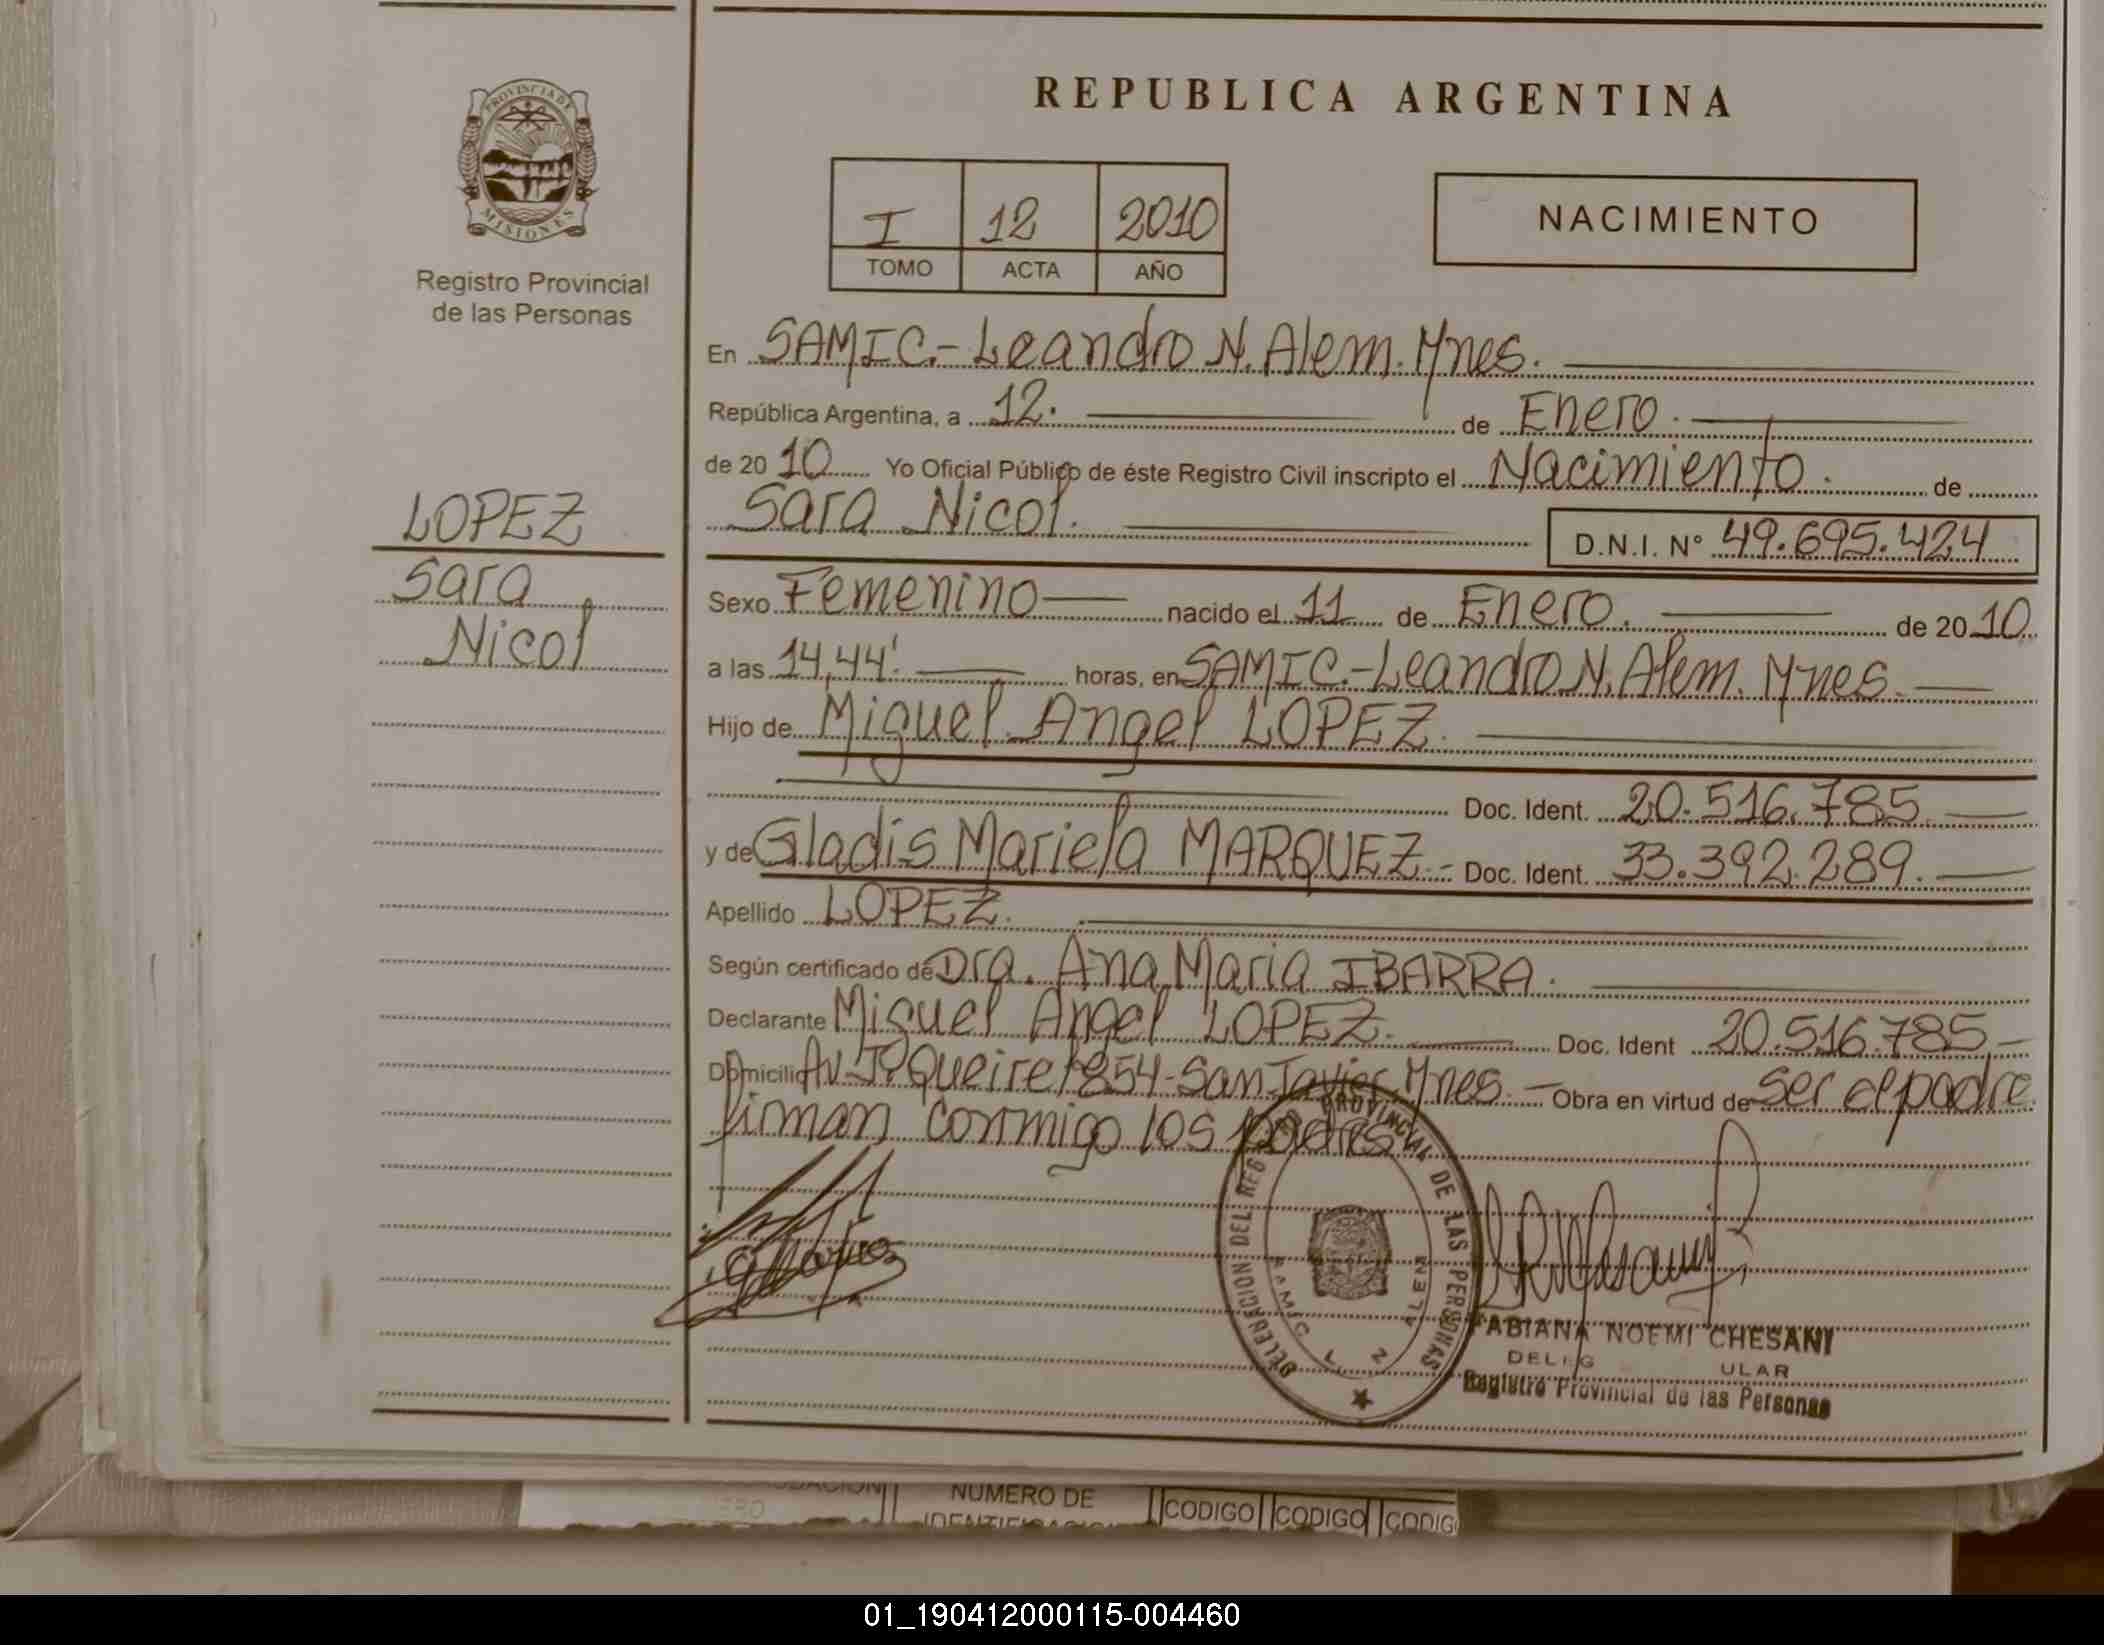 PROVINCIA DE
MISIONES
Registro Provincial
de las Personas
LOPEZ
Sara
Nicol
REPUBLICA ARGENTINA
I 12 2010
TOMO ACTA AÑO
NACIMIENTO
En SAMIC.-Leandro N. Alem. Mnes.
República Argentina, a 12. de Enero.
de 2010 Yo Oficial Público de éste Registro Civil inscripto el Nacimiento. de
Sara Nicol. D.N.I. Nº 49.695.424
Sexo Femenino nacido el 11 de Enero. de 2010
a las 14,44'. horas, en SAMIC.-Leandro N. Alem. Mnes.
Hijo de Miguel Angel LOPEZ.
Doc. Ident. 20.516.785
y de Gladis Mariela MARQUEZ.- Doc. Ident. 33.392.289.
Apellido LOPEZ.
Según certificado de Dra. Ana Maria IBARRA.
Declarante Miguel Angel LOPEZ. Doc. Ident 20.516.785
Domicilio Av. J. Queirel 854-San Javier Mnes. Obra en virtud de ser el padre
firman conmigo los padres
DELEGACION DEL REG PROVINCIAL DE LAS PERSONAS
SAMIC L. N ALEM
FABIANA NOEMI CHESANI
DELEG ULAR
Registro Provincial de las Personas
NUMERO DE
CODIGO CODIGO CODIG
01_190412000115-004460